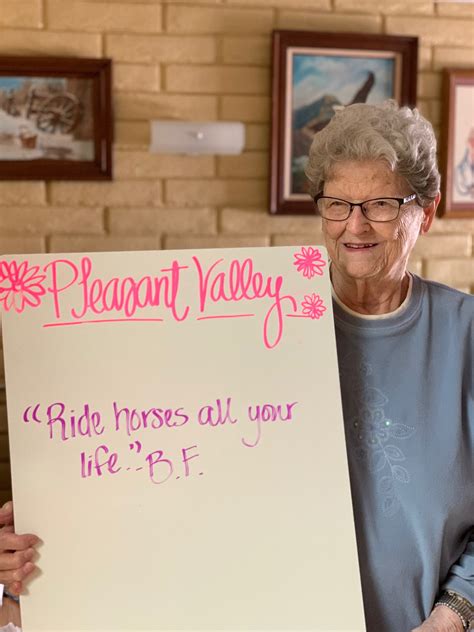 Pleasant Valley
"Ride horses all your
life." B.F.